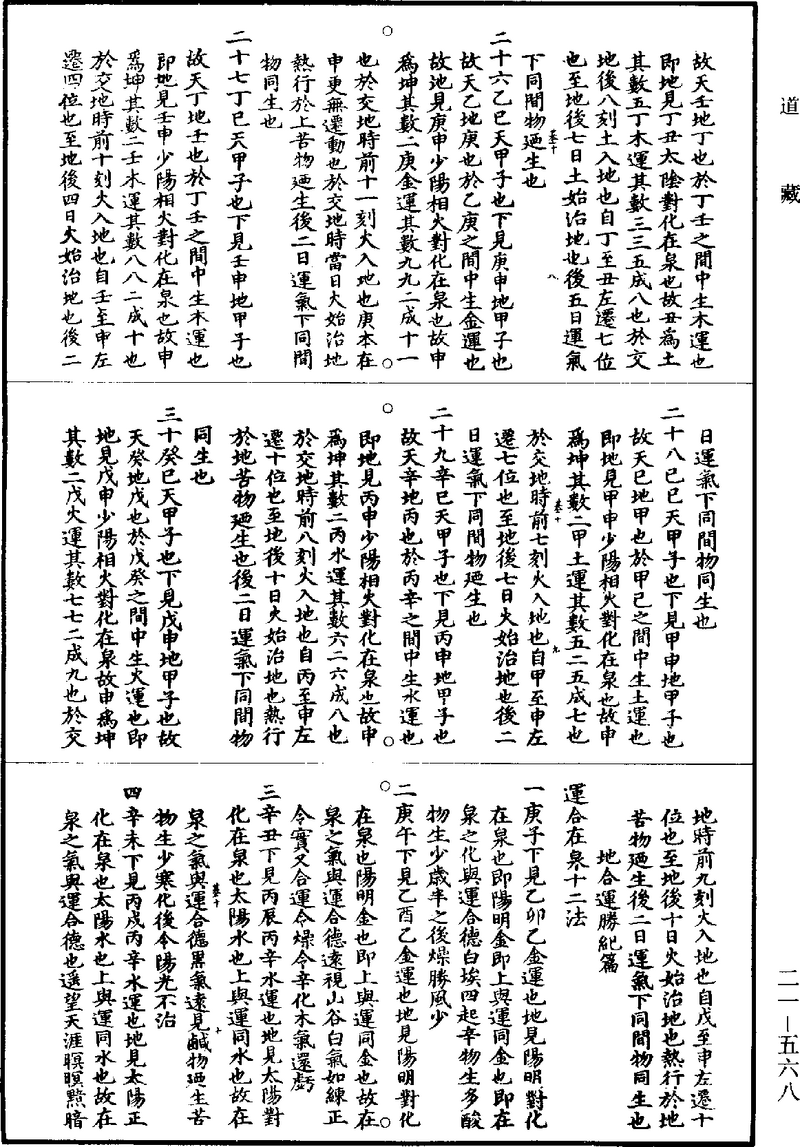 道藏
故天壬地丁也於丁壬之間中生木運也
即地見丁丑太陰對化在泉也故丑爲土
其數五丁木運其數三三五成八也於交
地後八刻土入地也自丁至丑左遷七位
也至地後七日土始治地也後五日運氣
下同間物廼生也
二十六乙巳天甲子也下見庚申地甲子也
故天乙地庚也於乙庚之間中生金運也
故地見庚申少陽相火對化在泉也故申
爲坤其數二庚金運其數九九二成十一
也於交地時前十一刻火入地也庚本在
申更無遷動也於交地時當日火始治地
熱行於上苦物廼生後二日運氣下同間
物同生也
二十七丁巳天甲子也下見壬申地甲子也
故天丁地壬也於丁壬之間中生木運也
即地見壬申少陽相火對化在泉也故申
爲坤其數二壬木運其數八八二成十也
於交地時前十刻火入地也自壬至申左
遷四位也至地後四日火始治地也後二
日運氣下同間物同生也
二十八己巳天甲子也下見甲申地甲子也
故天己地甲也於甲己之間中生土運也
即地見甲申少陽相火對化在泉也故申
爲坤其數二甲土運其數五二五成七也
於交地時前七刻火入地也自甲至申左
遷七位也至地後七日火始治地也後二
日運氣下同間物廼生也
二十九辛巳天甲子也下見丙申地甲子也
故天辛地丙也於丙辛之間中生水運也
即地見丙申少陽相火對化在泉也故申
爲坤其數二丙水運其數六二六成八也
於交地時前八刻火入地也自丙至申左
遷十位也至地後十日火始治地也熱行
於地苦物廼生也後二日運氣下同間物
同生也
三十癸巳天甲子也下見戊申地甲子也故
天癸地戊也於戊癸之間中生火運也即
地見戊申少陽相火對化在泉故申爲坤
其數二戊火運其數七七二成九也於交
地時前九刻火入地也自戊至申左遷十
位也至地後十日火始治地也熱行於地
苦物廼生後二日運氣下同間物同生也
地合運勝紀篇
運合在泉十二法
一庚子下見乙卯乙金運也地見陽明對化
在泉也即陽明金即上與運同金也即在
泉之化與運合德白埃四起辛物生多酸
物生少歲半之後燥勝風少
二庚午下見乙酉乙金運也地見陽明對化
在泉也陽明金也即上與運同金也故在
泉之氣與運合德遠視山谷白氣如練正
令實又合運令燥令辛化木氣還虧
三辛丑下見丙辰丙辛水運也地見太陽對
化在泉也太陽水也上與運同水也故在
泉之氣與運合德黑氣遠見鹹物廼生苦
物生少寒化後令陽光不治
四辛未下見丙戌丙辛水運也地見太陽正
化在泉也太陽水也上與運同水也故在
泉之氣與運合德也遥望天涯瞑瞑黯暗
二一—五六八